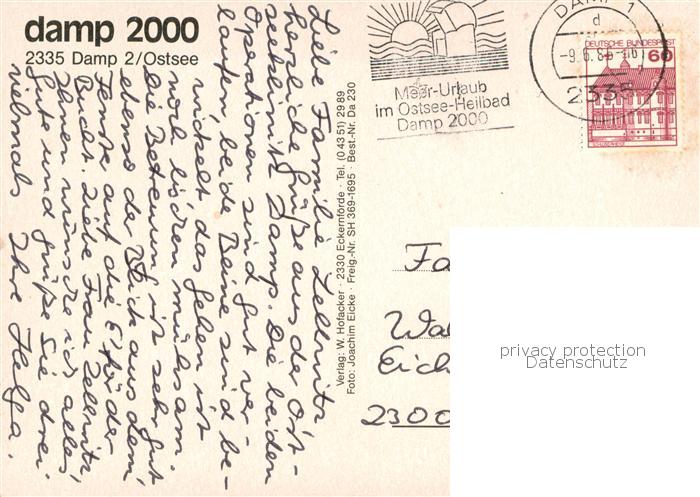 damp 2000
2335 Damp 2/Ostsee
Liebe Familie
herzliche Grüße aus der Ost-
seeklinik Damp. Die beiden
Operationen sind gut ver-
laufen, beide Beine sind be-
wickelt das gehen ist
noch bischen mühsam.
Die Betreuung ist sehr gut
ebenso der Blick aus dem
Fenster auf die
Bucht. Liebe Frau
Ihnen wünsche ich alles
Gute und grüße Sie drei
vielmals Ihre Helga.
Verlag: W. Hofacker · 2330 Eckernförde · Tel. (0 43 51) 29 89
Foto: Joachim Eicke · Freig.-Nr. SH 369-1695 · Best.-Nr. Da 230
Meer-Urlaub
im Ostsee-Heilbad
Damp 2000
DAMP 1
d
2335
DEUTSCHE BUNDESPOST
60
Fa
Wal
Eich
2300
privacy protection
Datenschutz